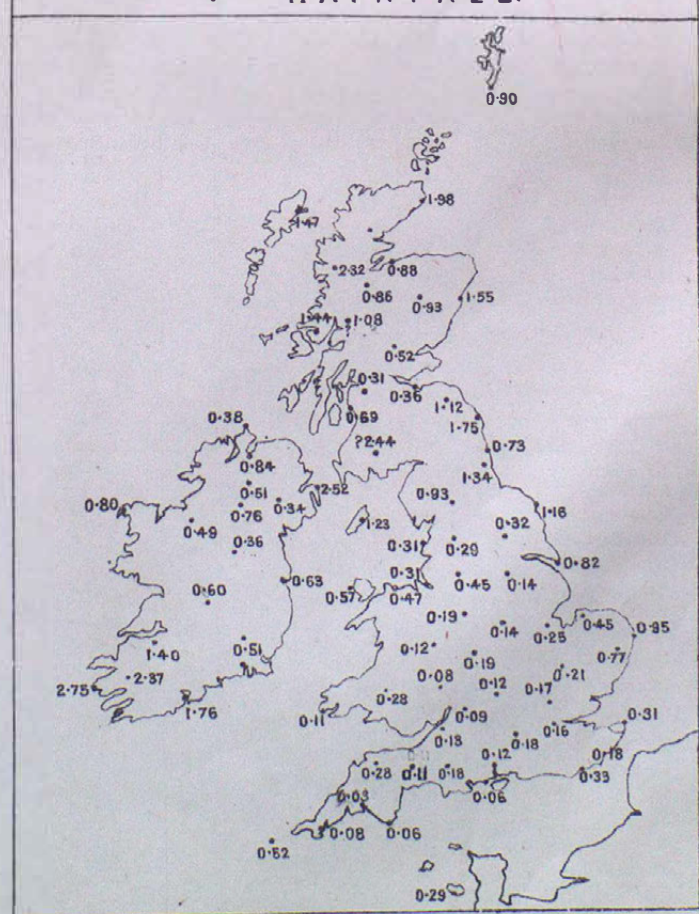 0.90
1.98
1.47
2.32
0.88
0.86
0.93
1.55
1.44
1.08
0.52
0.31
0.36
0.69
1.12
1.75
0.38
?2.44
0.73
0.84
1.34
0.51
2.52
0.80
0.76
0.34
0.93
1.16
0.49
1.23
0.32
0.36
0.31
0.29
0.82
0.63
0.31
0.45
0.14
0.60
0.57
0.47
0.19
0.14
0.25
0.45
0.95
1.40
0.51
0.12
0.19
0.77
2.75
2.37
0.08
0.12
0.21
0.28
0.17
1.76
0.11
0.09
0.31
0.13
0.18
0.16
0.11
0.12
0.18
0.28
0.11
0.18
0.33
0.03
0.06
0.08
0.06
0.52
0.29